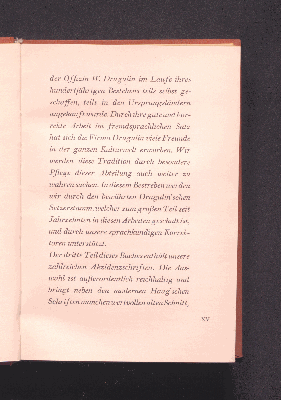 der Offizin W. Drugulin im Laufe ihres
hundertjährigen Bestehens teils selbst ge-
schaffen, teils in den Ursprungsländern
angekauft wurde. Durch ihre gute und kor-
rekte Arbeit im fremdsprachlichen Satz
hat sich die Firma Drugulin viele Freunde
in der ganzen Kulturwelt erworben. Wir
werden diese Tradition durch besondere
Pflege dieser Abteilung auch weiter zu
wahren suchen. In diesem Bestreben werden
wir durch den bewährten Drugulin'schen
Setzerstamm, welcher zum großen Teil seit
Jahrzehnten in diesen Arbeiten geschult ist,
und durch unsere sprachkundigen Korrek-
toren unterstützt.
Der dritte Teil dieses Buches enthält unsere
zahlreichen Akzidenzschriften. Die Aus-
wahl ist außerordentlich reichhaltig und
bringt neben den modernen Haag'schen
Schriften manchen wertvollen alten Schnitt,
XV